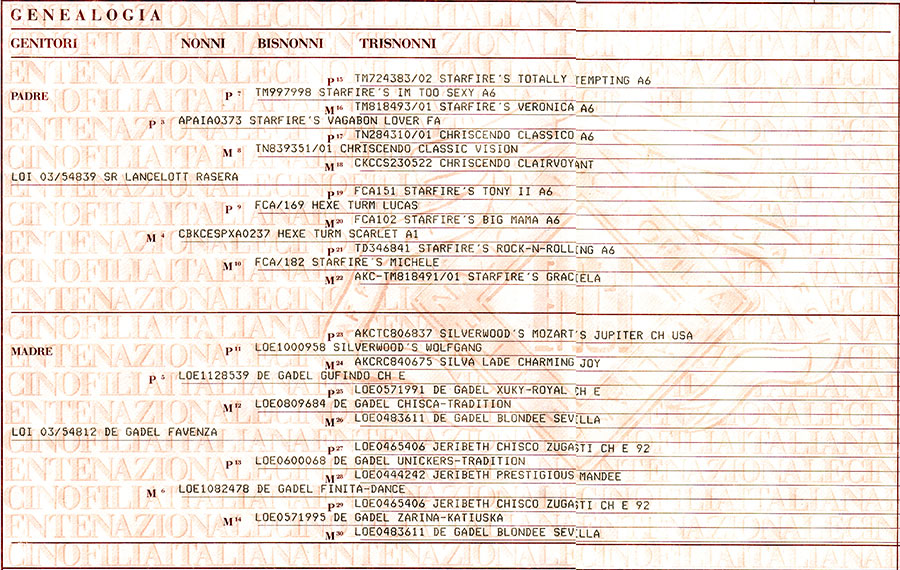 GENEALOGIA
GENITORI NONNI BISNONNI TRISNONNI
P 15 TM724383/02 STARFIRE'S TOTALLY TEMPTING A6
PADRE P 7 TM997998 STARFIRE'S IM TOO SEXY A6
M 16 TM818493/01 STARFIRE'S VERONICA A6
P 3 APAIA0373 STARFIRE'S VAGABON LOVER FA
P 17 TN284310/01 CHRISCENDO CLASSICO A6
M 8 TN839351/01 CHRISCENDO CLASSIC VISION
M 18 CKCCS230522 CHRISCENDO CLAIRVOYANT
LOI 03/54839 SR LANCELOTT RASERA
P 19 FCA151 STARFIRE'S TONY II A6
P 9 FCA/169 HEXE TURM LUCAS
M 20 FCA102 STARFIRE'S BIG MAMA A6
M 4 CBKCESPXA0237 HEXE TURM SCARLET A1
P 21 TD346841 STARFIRE'S ROCK-N-ROLLING A6
M 10 FCA/182 STARFIRE'S MICHELE
M 22 AKC-TM818491/01 STARFIRE'S GRACIELA
P 23 AKCTC806837 SILVERWOOD'S MOZART'S JUPITER CH USA
MADRE P 11 LOE1000958 SILVERWOOD'S WOLFGANG
M 24 AKCRC840675 SILVA LADE CHARMING JOY
P 5 LOE1128539 DE GADEL GUFINDO CH E
P 25 LOE0571991 DE GADEL XUKY-ROYAL CH E
M 12 LOE0809684 DE GADEL CHISCA-TRADITION
M 26 LOE0483611 DE GADEL BLONDEE SEVILLA
LOI 03/54812 DE GADEL FAVENZA
P 27 LOE0465406 JERIBETH CHISCO ZUGASTI CH E 92
P 13 LOE0600068 DE GADEL UNICKERS-TRADITION
M 28 LOE0444242 JERIBETH PRESTIGIOUS MANDEE
M 6 LOE1082478 DE GADEL FINITA-DANCE
P 29 LOE0465406 JERIBETH CHISCO ZUGASTI CH E 92
M 14 LOE0571995 DE GADEL ZARINA-KATIUSKA
M 30 LOE0483611 DE GADEL BLONDEE SEVILLA